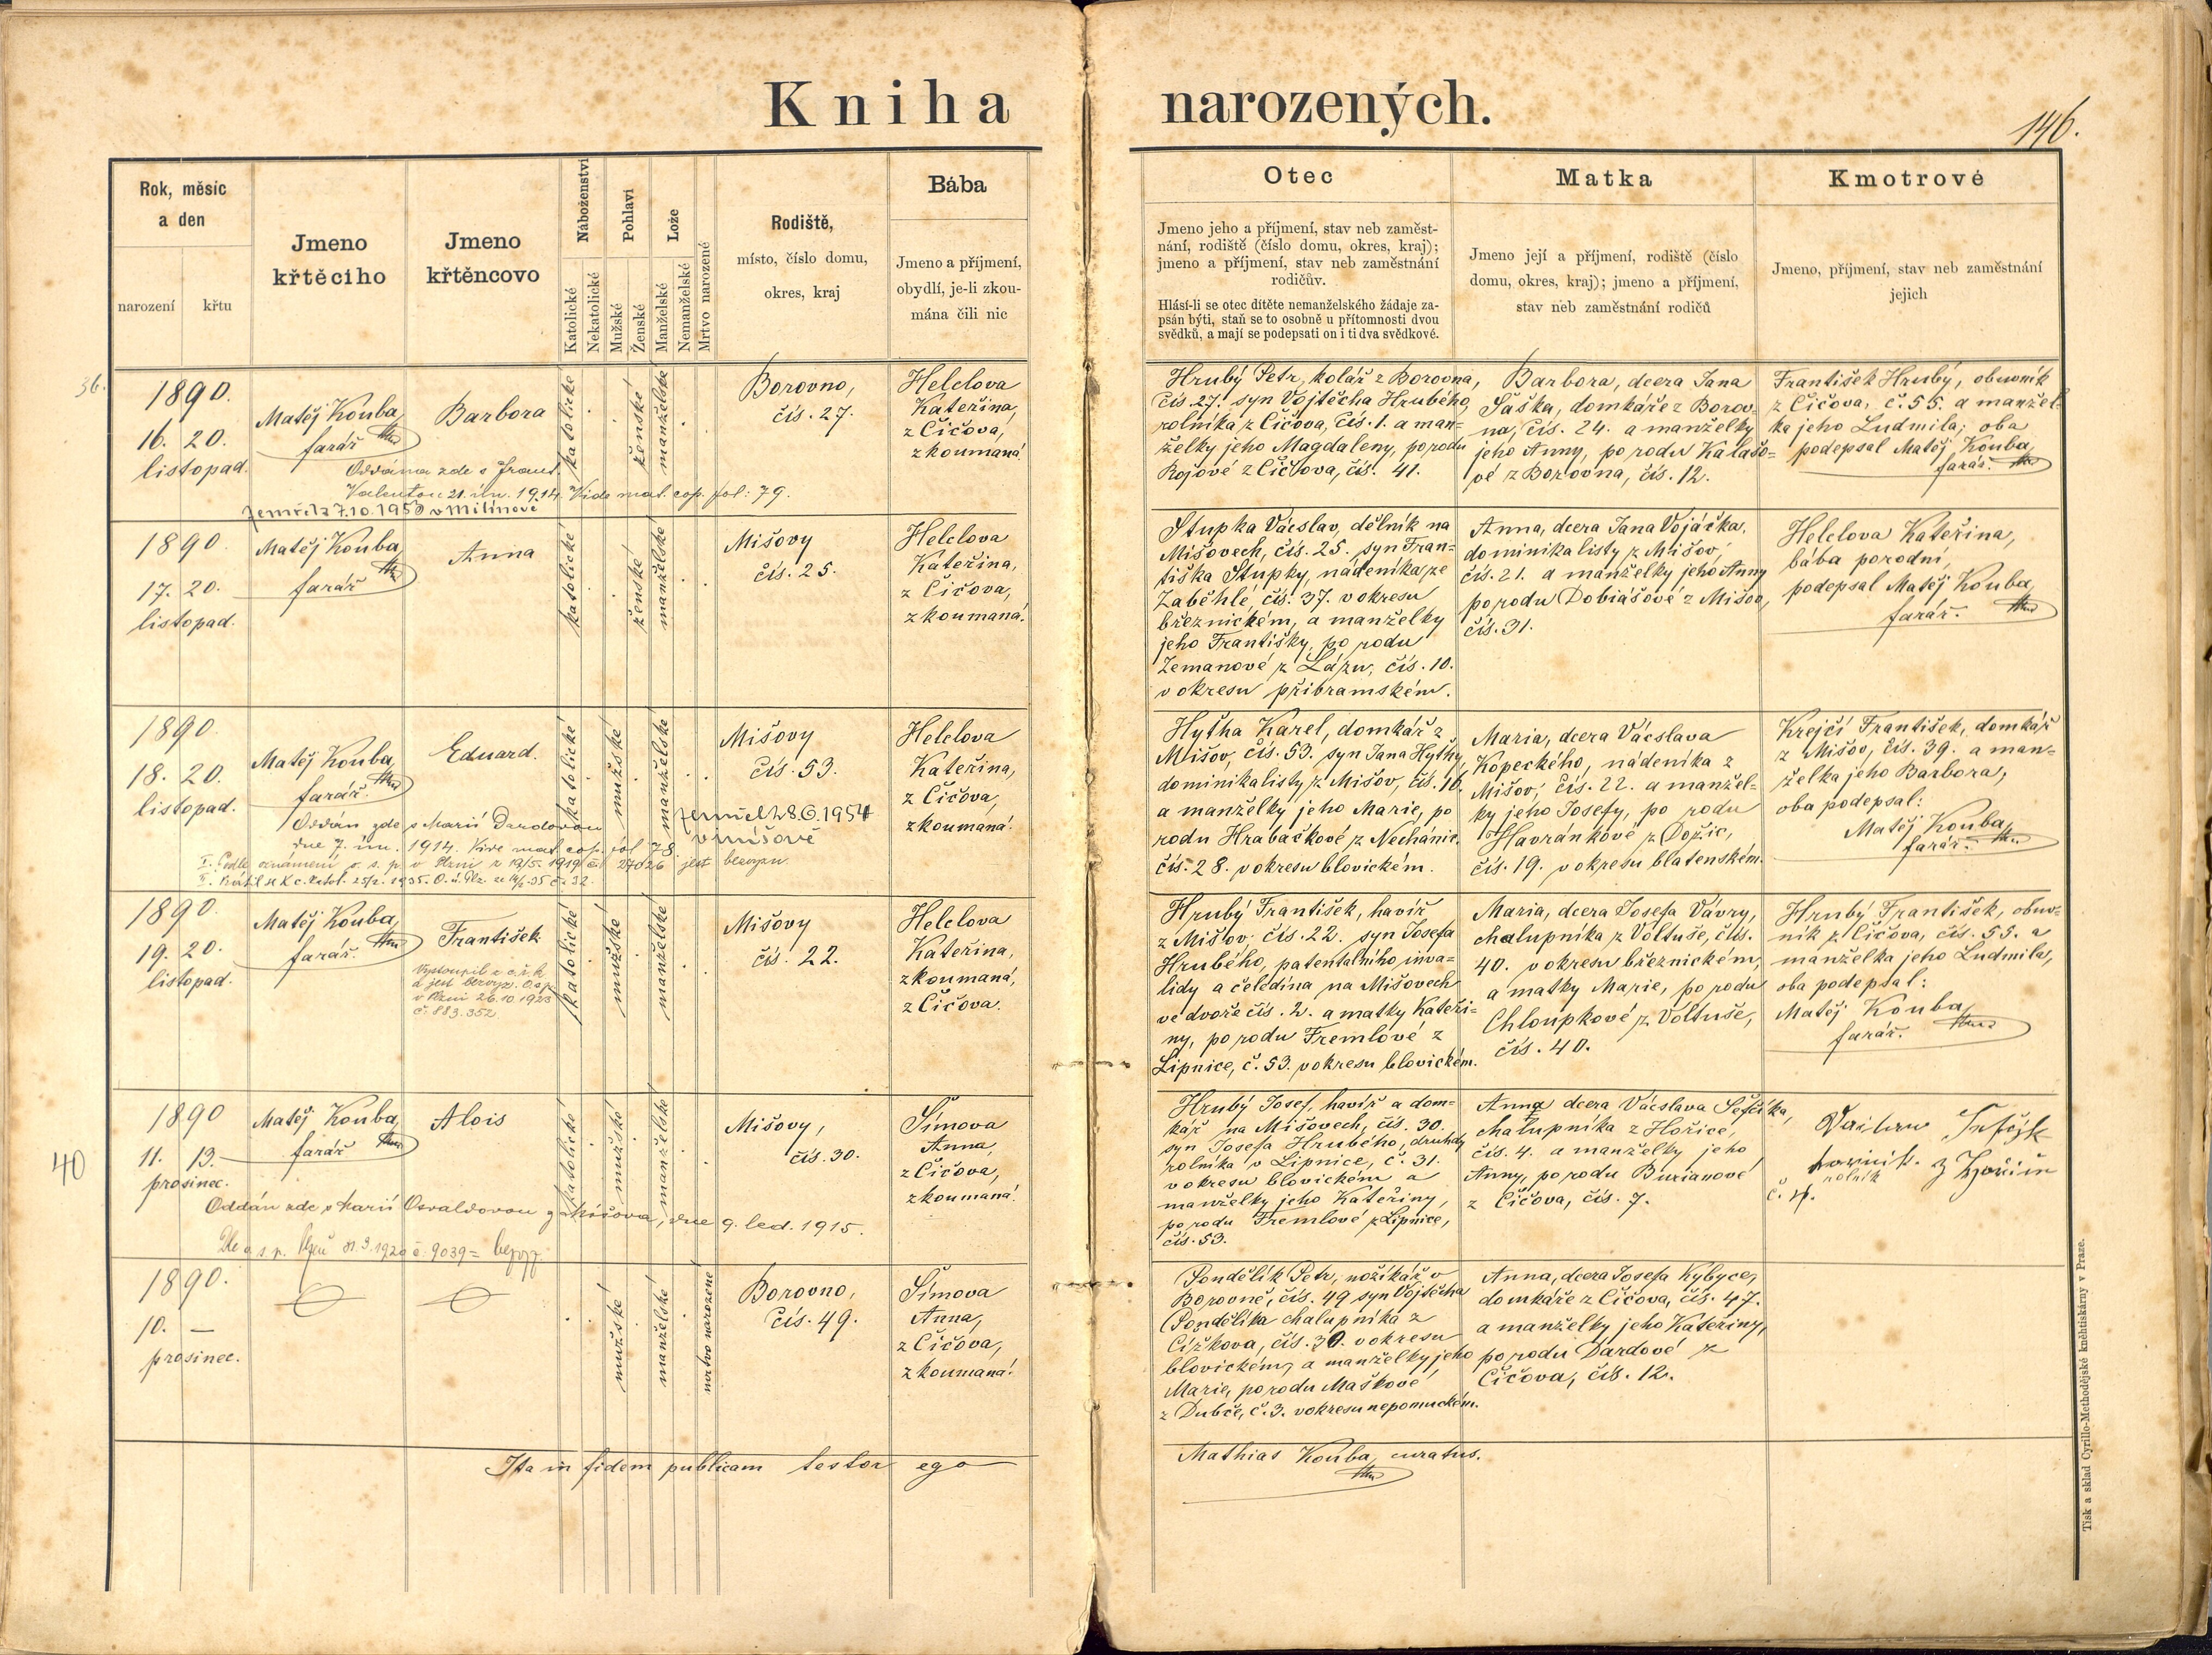 Kniha narozených.
146.
Rok, měsíc
a den
narození
křtu
Jmeno
křtěcího
Jmeno
křtěncovo
Náboženství
Katolické
Nekatolické
Pohlaví
Mužské
Ženské
Lože
Manželské
Nemanželské
Mrtvo narozené
Rodiště,
místo, číslo domu,
okres, kraj
Bába
Jmeno a příjmení,
obydlí, je-li zkou-
mána čili nic
Otec
Jmeno jeho a příjmení, stav neb zaměst-
nání, rodiště (číslo domu, okres, kraj);
jmeno a příjmení, stav neb zaměstnání
rodičův.
Hlásí-li se otec dítěte nemanželského žádaje za-
psán býti, staň se to osobně u přítomnosti dvou
svědků, a mají se podepsati on i ti dva svědkové.
Matka
Jmeno její a příjmení, rodiště (číslo
domu, okres, kraj); jmeno a příjmení,
stav neb zaměstnání rodičů
Kmotrové
Jmeno, příjmení, stav neb zaměstnání
jejich
36.
1890.
16. 20.
listopad.
Matěj Kouba,
farář
Barbora
katolické
ženské
manželské
Borovno,
čís. 27.
Helclova
Kateřina,
z Číčova,
zkoumaná
Oddána zde s Frant.
Valentou 21. ún. 1914. Vide mat. cop. fol: 79.
Zemřela 7.10.1950 v Milínově
Hrubý Petr, kolář z Borovna,
čís. 27. syn Vojtěcha Hrubého,
rolníka z Číčova, čís. 1. a man=
želky jeho Magdaleny, porodu
Rojové z Číčova, čís. 41.
Barbora, dcera Jana
Šaška, domkáře z Borov=
na, čís. 24. a manželky
jeho Anny, po rodu Kalašo=
vé z Borovna, čís. 12.
František Hrubý, obuvník
z Číčova, č. 55. a manžel=
ka jeho Ludmila; oba
podepsal Matěj Kouba,
farář.
1890.
17. 20.
listopad.
Matěj Kouba,
farář
Anna
katolické
ženské
manželské
Mišovy
čís. 25.
Helclova
Kateřina,
z Číčova,
zkoumaná.
Stupka Václav, dělník na
Mišovech, čís. 25. syn Fran=
tiška Stupky, nádeníka ze
Zaběhlé, čís. 37. v okresu
březnickém, a manželky
jeho Františky, po rodu
Zemanové z Lázu, čís. 10.
v okresu příbramském.
Anna, dcera Jana Vojáčka,
dominikalisty z Mišov,
čís. 21. a manželky jeho Anny
po rodu Dobiášové z Mišov,
čís. 31.
Helclova Kateřina,
bába porodní,
podepsal Matěj Kouba,
farář.
1890.
18. 20.
listopad.
Matěj Kouba,
farář.
Eduard.
katolické
mužské
manželské
Mišovy
čís. 53.
Helclova
Kateřina,
z Číčova,
zkoumaná.
Zemřel 28.6.1954
v Mišově
Oddán zde s Marií Dardovou
dne 7. ún. 1914. Vide mat. cop. fol 78
I. Podle oznámení o. s. p. v Plzni z 13/5. 1919 čís. 27026 jest bezvyzn.
Hytha Karel, domkář z
Mišov, čís. 53. syn Jana Hythy,
dominikalisty z Mišov, čís. 16.
a manželky jeho Marie, po
rodu Hrabačkové z Nechánic
čís. 28. v okresu blovickém.
Maria, dcera Václava
Kopeckého, nádeníka z
Mišov, čís. 22. a manžel=
ky jeho Josefy, po rodu
Havránkové z Dožic,
čís. 19. v okresu blatenském.
Krejčí František, domkář
z Mišov, čís. 39. a man=
želka jeho Barbora,
oba podepsal:
Matěj Kouba,
farář.
1890.
19. 20.
listopad.
Matěj Kouba,
farář.
František
katolické
mužské
manželské
Mišovy
čís. 22.
Helclova
Kateřina,
zkoumaná,
z Číčova.
Vystoupil z c. ř. k
a jest bezvyz. O.s.p.
v Plzni 26.10.1923
č. 883.352
Hrubý František, havíř
z Mišov čís. 22. syn Josefa
Hrubého, patentalního inva=
lidy a čeledína na Mišovech
ve dvoře čís. 2. a matky Kateři=
ny, po rodu Fremlové z
Lipnice, č. 53. v okresu blovickém.
Maria, dcera Josefa Vávry,
chalupníka z Voltuše, čís.
40. v okresu březnickém,
a matky Marie, po rodu
Chloupkové z Voltuše,
čís. 40.
Hrubý František, obuv=
ník z Číčova, čís. 55. a
manželka jeho Ludmila,
oba podepsal:
Matěj Kouba,
farář.
40
1890
11. 13.
prosinec.
Matěj Kouba,
farář
Alois
katolické
mužské
manželské
Mišovy,
čís. 30.
Šímova
Anna,
z Číčova,
zkoumaná.
Oddán zde s Marií Osvaldovou z Mišova, dne 9. led. 1915.
Dle o. s. p. Plzeň 31.3.1920 č. 9039 =
Hrubý Josef, havíř a dom=
kář na Mišovech, čís. 30.
syn Josefa Hrubého, druhdy
rolníka v Lipnice, č. 31.
v okresu blovickém a
manželky jeho Kateřiny,
po rodu Fremlové z Lipnice,
čís. 53.
Anna dcera Václava Šefčíka,
chalupníka z Hořice,
čís. 4. a manželky jeho
Anny, po rodu Burianové
z Číčova, čís. 7.
rolník
č. 4.
1890.
10. —
prosinec.
mužské
manželské
mrtvo narozené
Borovno,
čís. 49.
Šímova
Anna,
z Číčova,
zkoumaná.
Pondělík Petr, nožíkář v
Borovně, čís. 49 syn Vojtěcha
Pondělíka chalupníka z
Čížkova, čís. 30. v okresu
blovickém, a manželky jeho
Marie, po rodu Maškové
z Dubče, č. 3. v okresu nepomuckém.
Anna, dcera Josefa Kybyce,
domkáře z Číčova, čís. 47.
a manželky jeho Kateřiny,
po rodu Dardové z
Číčova, čís. 12.
Ita in fidem publicam testor ego
Mathias Kouba, curatus.
Tisk a sklad Cyrillo-Methodějské knihtiskárny v Praze.